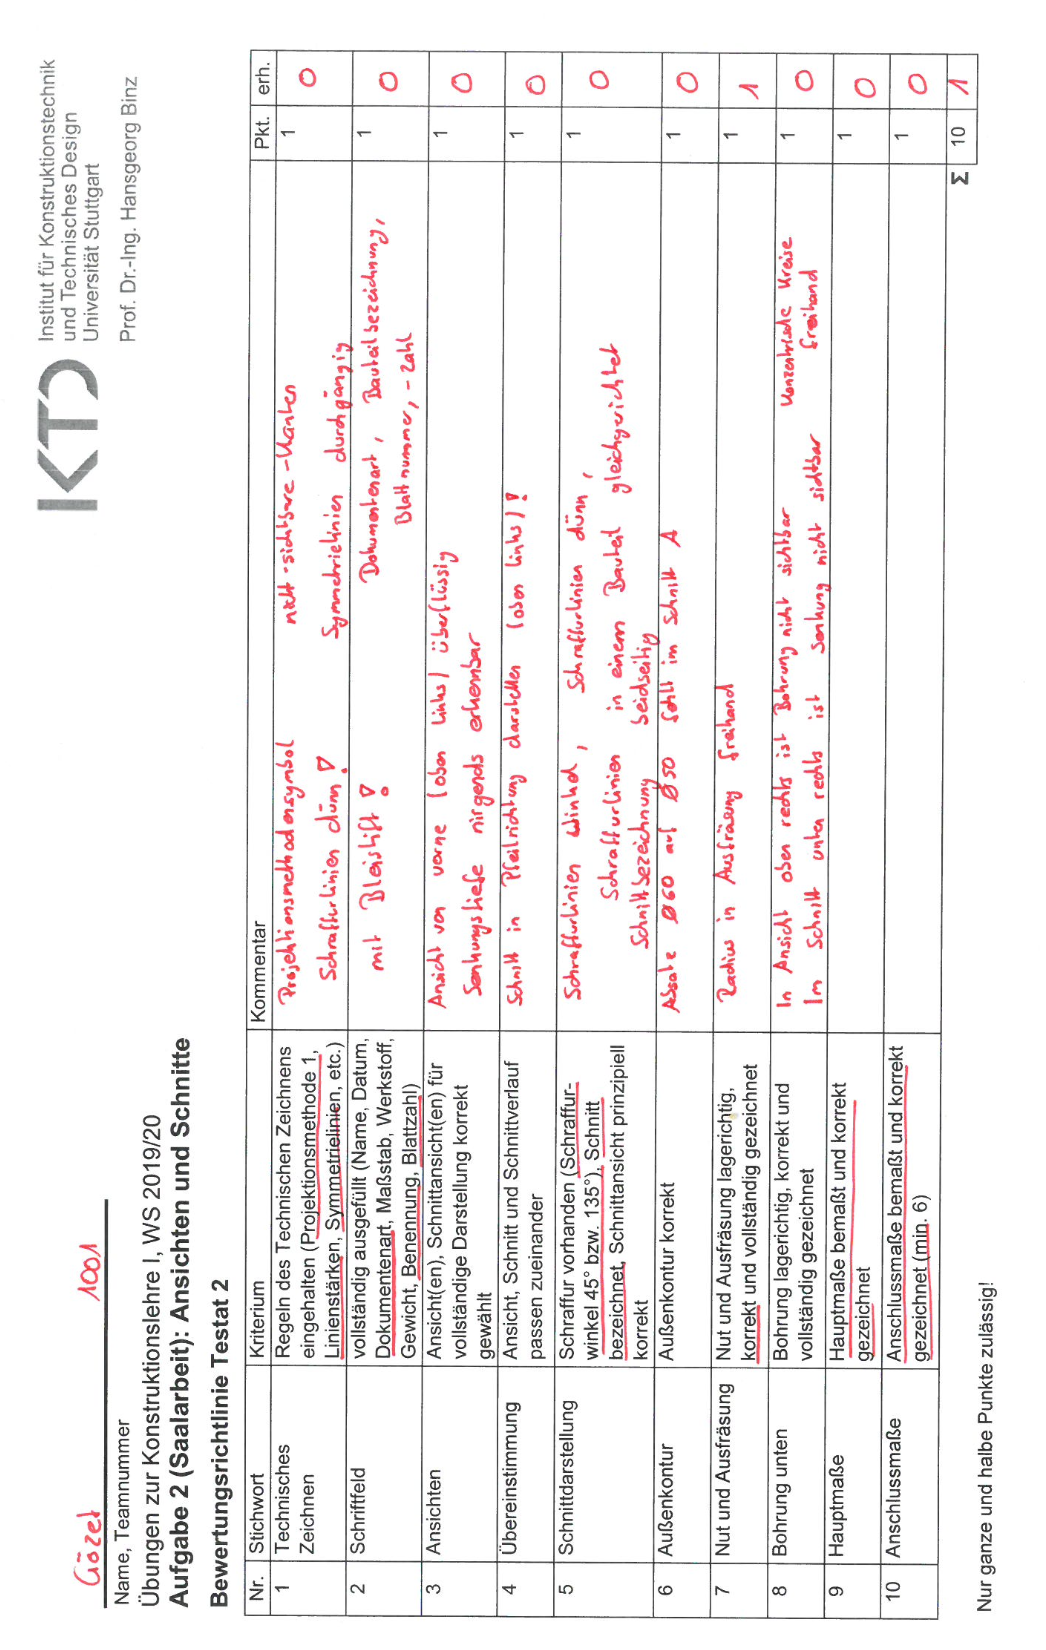 Gözel 1001
Name, Teamnummer
Übungen zur Konstruktionslehre I, WS 2019/20
Aufgabe 2 (Saalarbeit): Ansichten und Schnitte
Bewertungsrichtlinie Testat 2
IKTD
Institut für Konstruktionstechnik
und Technisches Design
Universität Stuttgart
Prof. Dr.-Ing. Hansgeorg Binz
Nr. Stichwort Kriterium Kommentar Pkt. erh.
1 Technisches
Zeichnen
Regeln des Technischen Zeichnens
eingehalten (Projektionsmethode 1,
Linienstärken, Symmetrielinien, etc.)
Projektionsmethodensymbol nicht-sichtbare-Kanten
Schraffurlinien dünn! Symmetrielinien durchgängig
1 0
2 Schriftfeld
vollständig ausgefüllt (Name, Datum,
Dokumentenart, Maßstab, Werkstoff,
Gewicht, Benennung, Blattzahl)
mit Bleistift! Dokumentenart, Bauteilbezeichnung,
Blattnummer, -zahl
1 0
3 Ansichten
Ansicht(en), Schnittansicht(en) für
vollständige Darstellung korrekt
gewählt
Ansicht von vorne (oben links) überflüssig
Senkungstiefe nirgends erkennbar
1 0
4 Übereinstimmung
Ansicht, Schnitt und Schnittverlauf
passen zueinander
Schnitt in Pfeilrichtung darstellen (oben links)!
1 0
5 Schnittdarstellung
Schraffur vorhanden (Schraffur-
winkel 45° bzw. 135°), Schnitt
bezeichnet, Schnittansicht prinzipiell
korrekt
Schraffurlinien Winkel, Schraffurlinien dünn,
Schraffurlinien in einem Bauteil gleichgerichtet
Schnittbezeichnung beidseitig
1 0
6 Außenkontur
Außenkontur korrekt
Absatz ø60 auf ø50 fehlt im Schnitt A
1 0
7 Nut und Ausfräsung
Nut und Ausfräsung lagerichtig,
korrekt und vollständig gezeichnet
Radius in Ausfräsung freihand
1 1
8 Bohrung unten
Bohrung lagerichtig, korrekt und
vollständig gezeichnet
In Ansicht oben rechts ist Bohrung nicht sichtbar Konzentrische Kreise
Im Schnitt unten rechts ist Senkung nicht sichtbar freihand
1 0
9 Hauptmaße
Hauptmaße bemaßt und korrekt
gezeichnet
1 0
10 Anschlussmaße
Anschlussmaße bemaßt und korrekt
gezeichnet (min. 6)
1 0
Σ 10 1
Nur ganze und halbe Punkte zulässig!